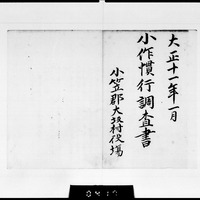 大正十一年一月
小作慣行調査書
小笠郡大坂村役場